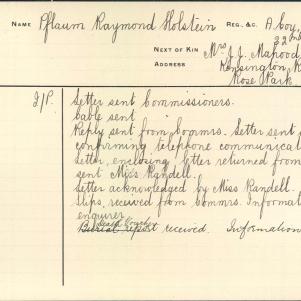 NAME Pflaum Raymond Holstein REG. &C. A boy,
22nd
NEXT OF KIN Mrs J. J. Mapood
ADDRESS Kensington R
Rose Park
I/P. Letter sent Commissioners.
Cable sent
Reply sent from Commrs. Letter sent
confirming telephone communicat
Letter, enclosing letter returned from
sent Miss Randell.
Letter acknowledged by Miss Randell.
Slips, received from Commrs. Informat
enquirer
Death Voucher
Burial report received. Information